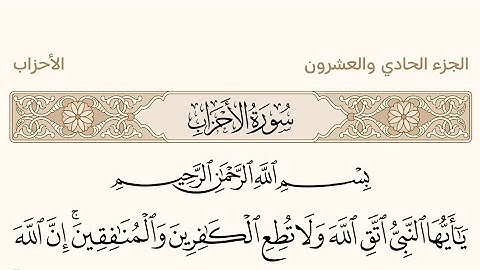 الجزء الحادي والعشرون الأحزاب
سُورَةُ الأَحْزَابِ
بِسْمِ ٱللَّهِ ٱلرَّحْمَٰنِ ٱلرَّحِيمِ
يَٰٓأَيُّهَا ٱلنَّبِيُّ ٱتَّقِ ٱللَّهَ وَلَا تُطِعِ ٱلْكَٰفِرِينَ وَٱلْمُنَٰفِقِينَۚ إِنَّ ٱللَّهَ